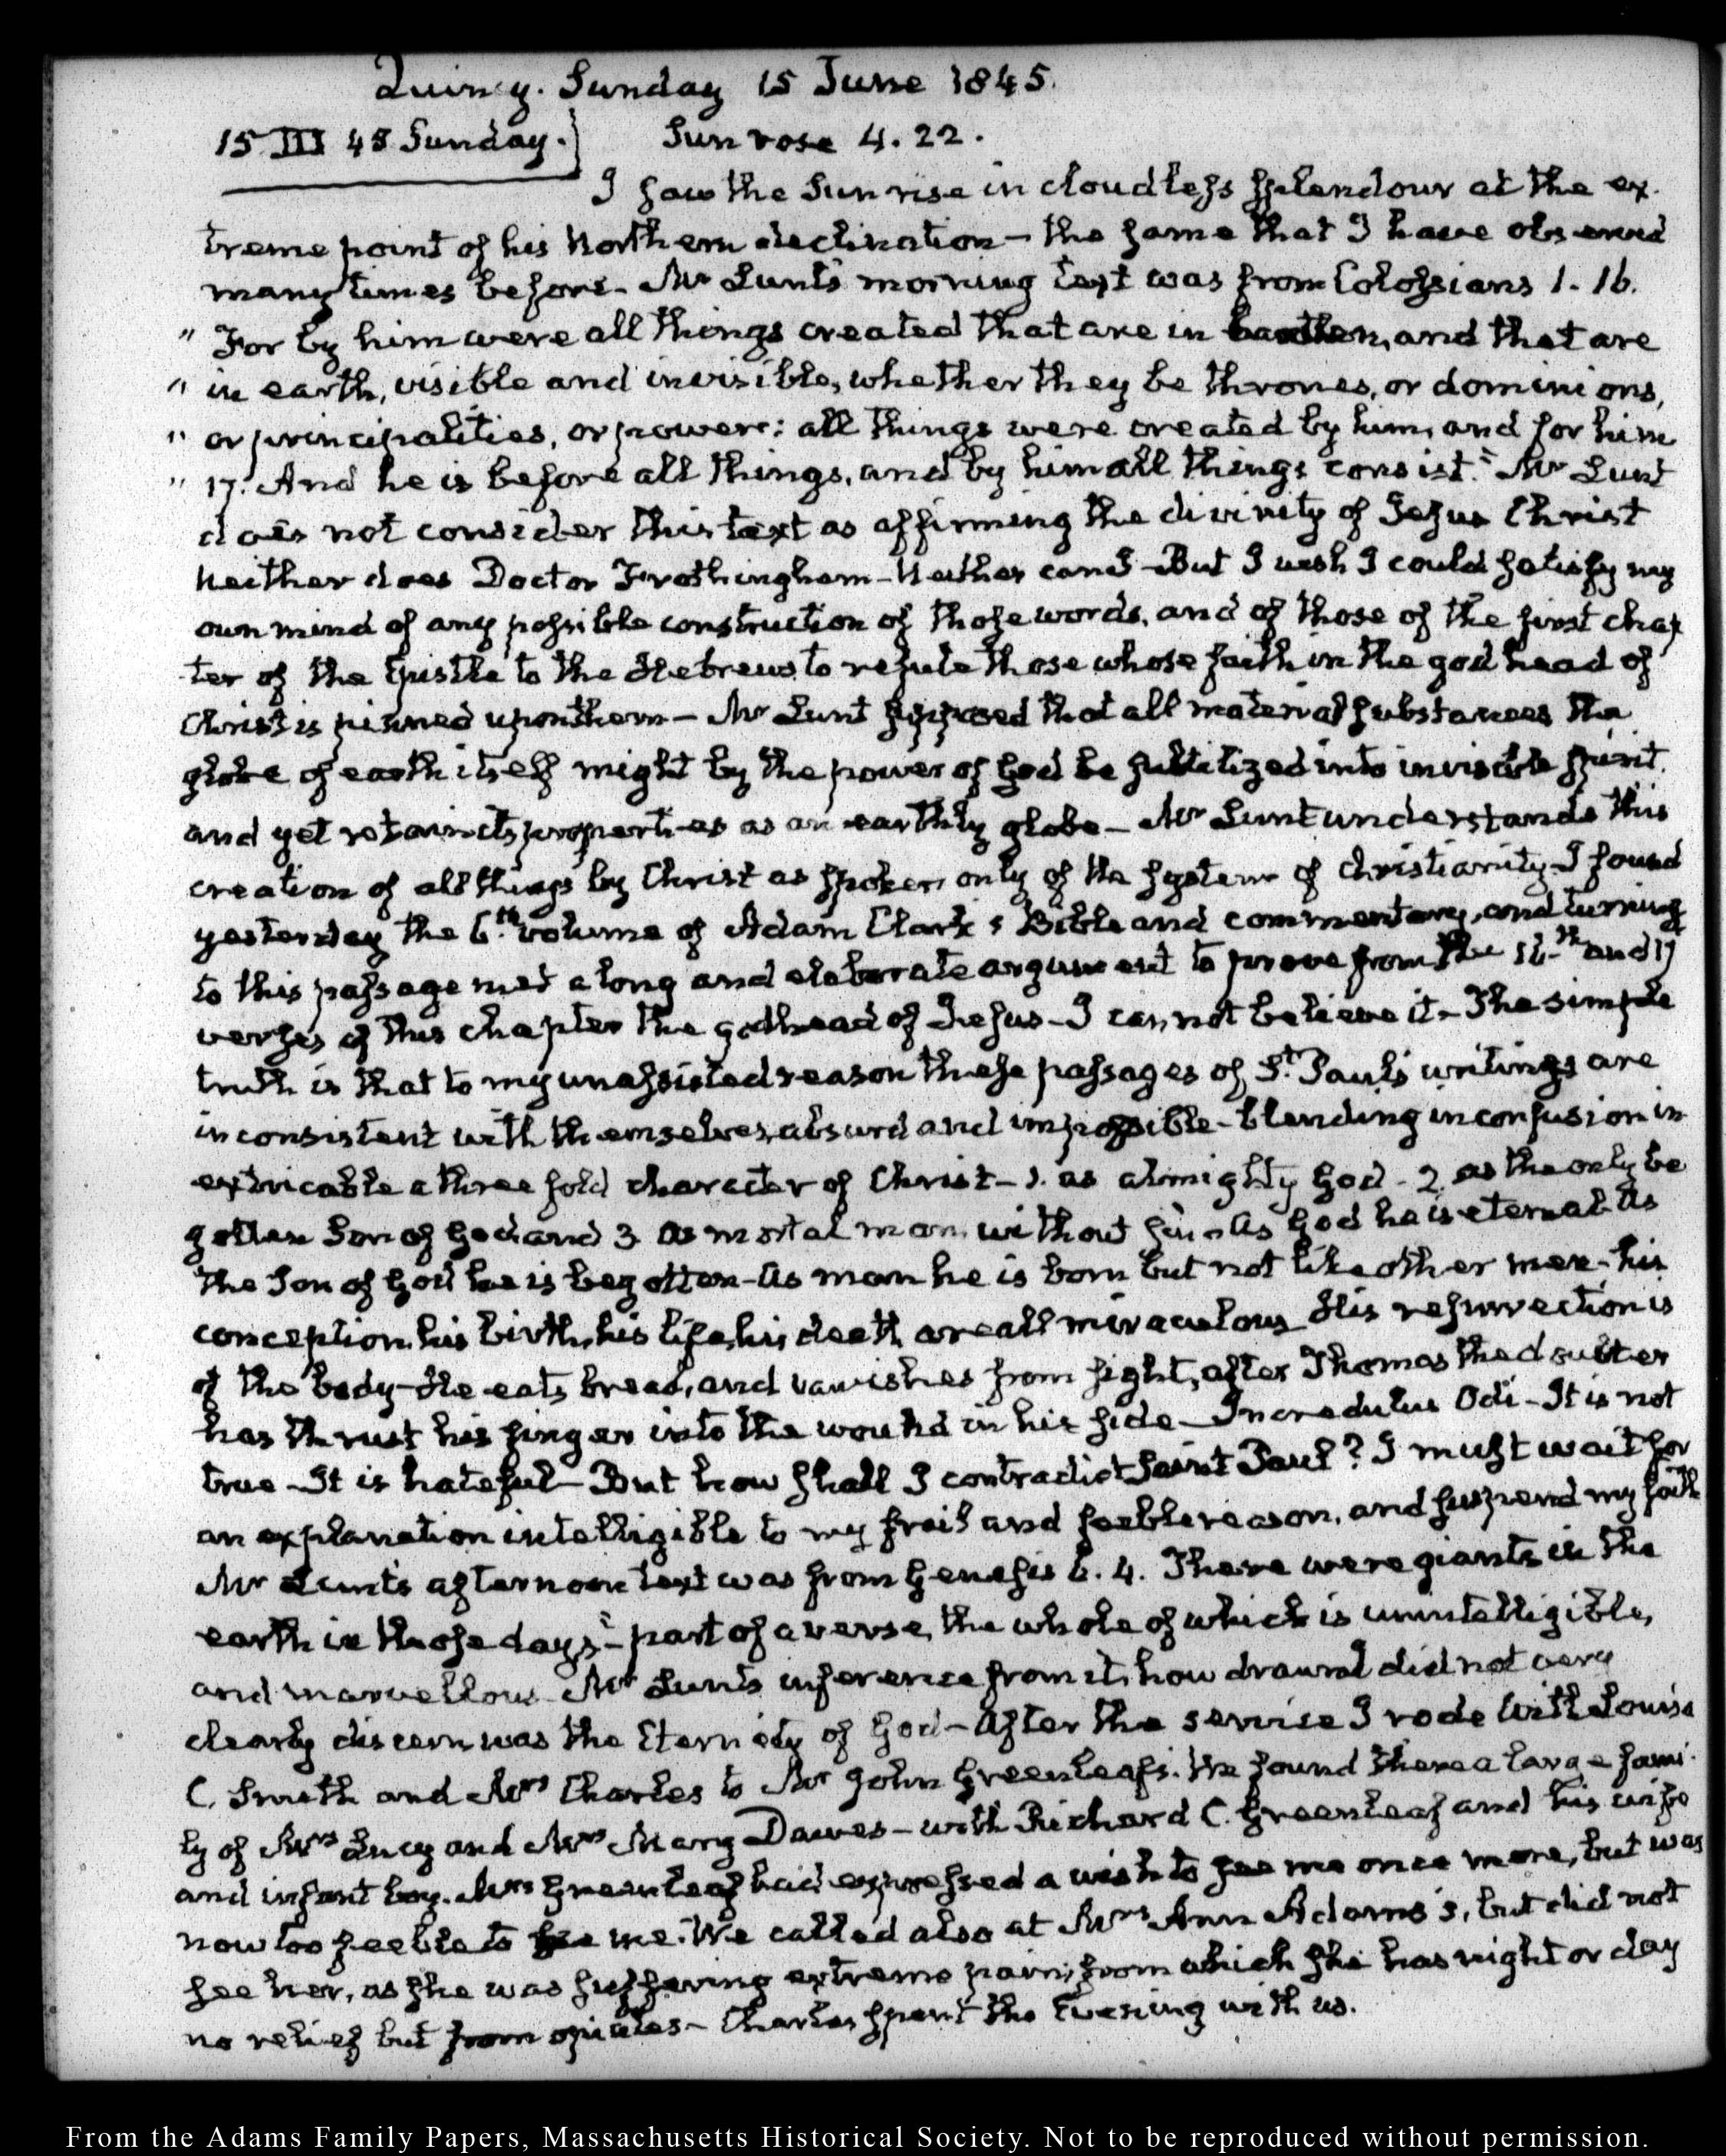 Quincy. Sunday 15 June 1845.
15. III 45 Sunday. Sun rose 4. 22.
I saw the Sun rise in cloudless splendour at the ex-
treme point of his Northern declination — the same that I have observed
many times before — Mr Lunt's morning text was from Colossians 1. 16.
" For by him were all things created that are in heaven, and that are
" in earth, visible and invisible, whether they be thrones, or dominions,
" or principalities, or powers: all things were created by him, and for him
" 17. And he is before all things, and by him all things consist." Mr Lunt
does not consider this text as affirming the divinity of Jesus Christ
Neither does Doctor Frothingham — Neither can I — But I wish I could satisfy my
own mind of any possible construction of those words, and of those of the first chap
ter of the Epistle to the Hebrews to refute those whose faith in the god head of
Christ is pinned upon them — Mr Lunt supposed that all material substances the
globe of earth itself might by the power of God be subtilized into invisible spirit
and yet retain its properties as an earthly globe — Mr Lunt understands this
creation of all things by Christ as spoken only of the system of Christianity — I found
yesterday the 6th volume of Adam Clark's Bible and commentary, and turning
to this passage met a long and elaborate argument to prove from the 16th and 17
verses of this chapter the godhead of Jesus — I cannot believe it — The simple
truth is that to my unassisted reason these passages of St. Paul's writings are
inconsistent with themselves, absurd and impossible — blending in confusion in
extricable a three fold character of Christ — 1. as almighty God — 2. as the only be
gotten Son of God and 3 as mortal man without sin — As God he is eternal. As
the Son of God he is begotten — As man he is born but not like other men — his
conception, his birth, his life, his death are all miraculous — His resurrection is
of the body — He eats bread, and vanishes from sight, after Thomas the doubter
has thrust his finger into the wound in his side — Incredulus Odi — It is not
true — It is hateful — But how shall I contradict Saint Paul? I must wait for
an explanation intelligible to my frail and feeble reason, and suspend my faith
Mr Lunt's afternoon text was from Genesis 6. 4. There were giants in the
earth in those days" — part of a verse, the whole of which is unintelligible,
and marvellous — Mr Lunt's inference from it, how drawn I did not very
clearly discern, was the Eternity of God — After the service I rode with Louisa
C. Smith and Mrs Charles to Mr John Greenleaf's. We found there a large fami-
ly of Mrs Lucy and Mrs Mary Dawes — with Richard C. Greenleaf and his wife
and infant boy. Mrs Greenleaf had expressed a wish to see me once more, but was
now too feeble to see me. We called also at Mrs Ann Adams's, but did not
see her, as she was suffering extreme pain, from which she has night or day
no relief but from opiates — Charles spent the Evening with us.
From the Adams Family Papers, Massachusetts Historical Society. Not to be reproduced without permission.